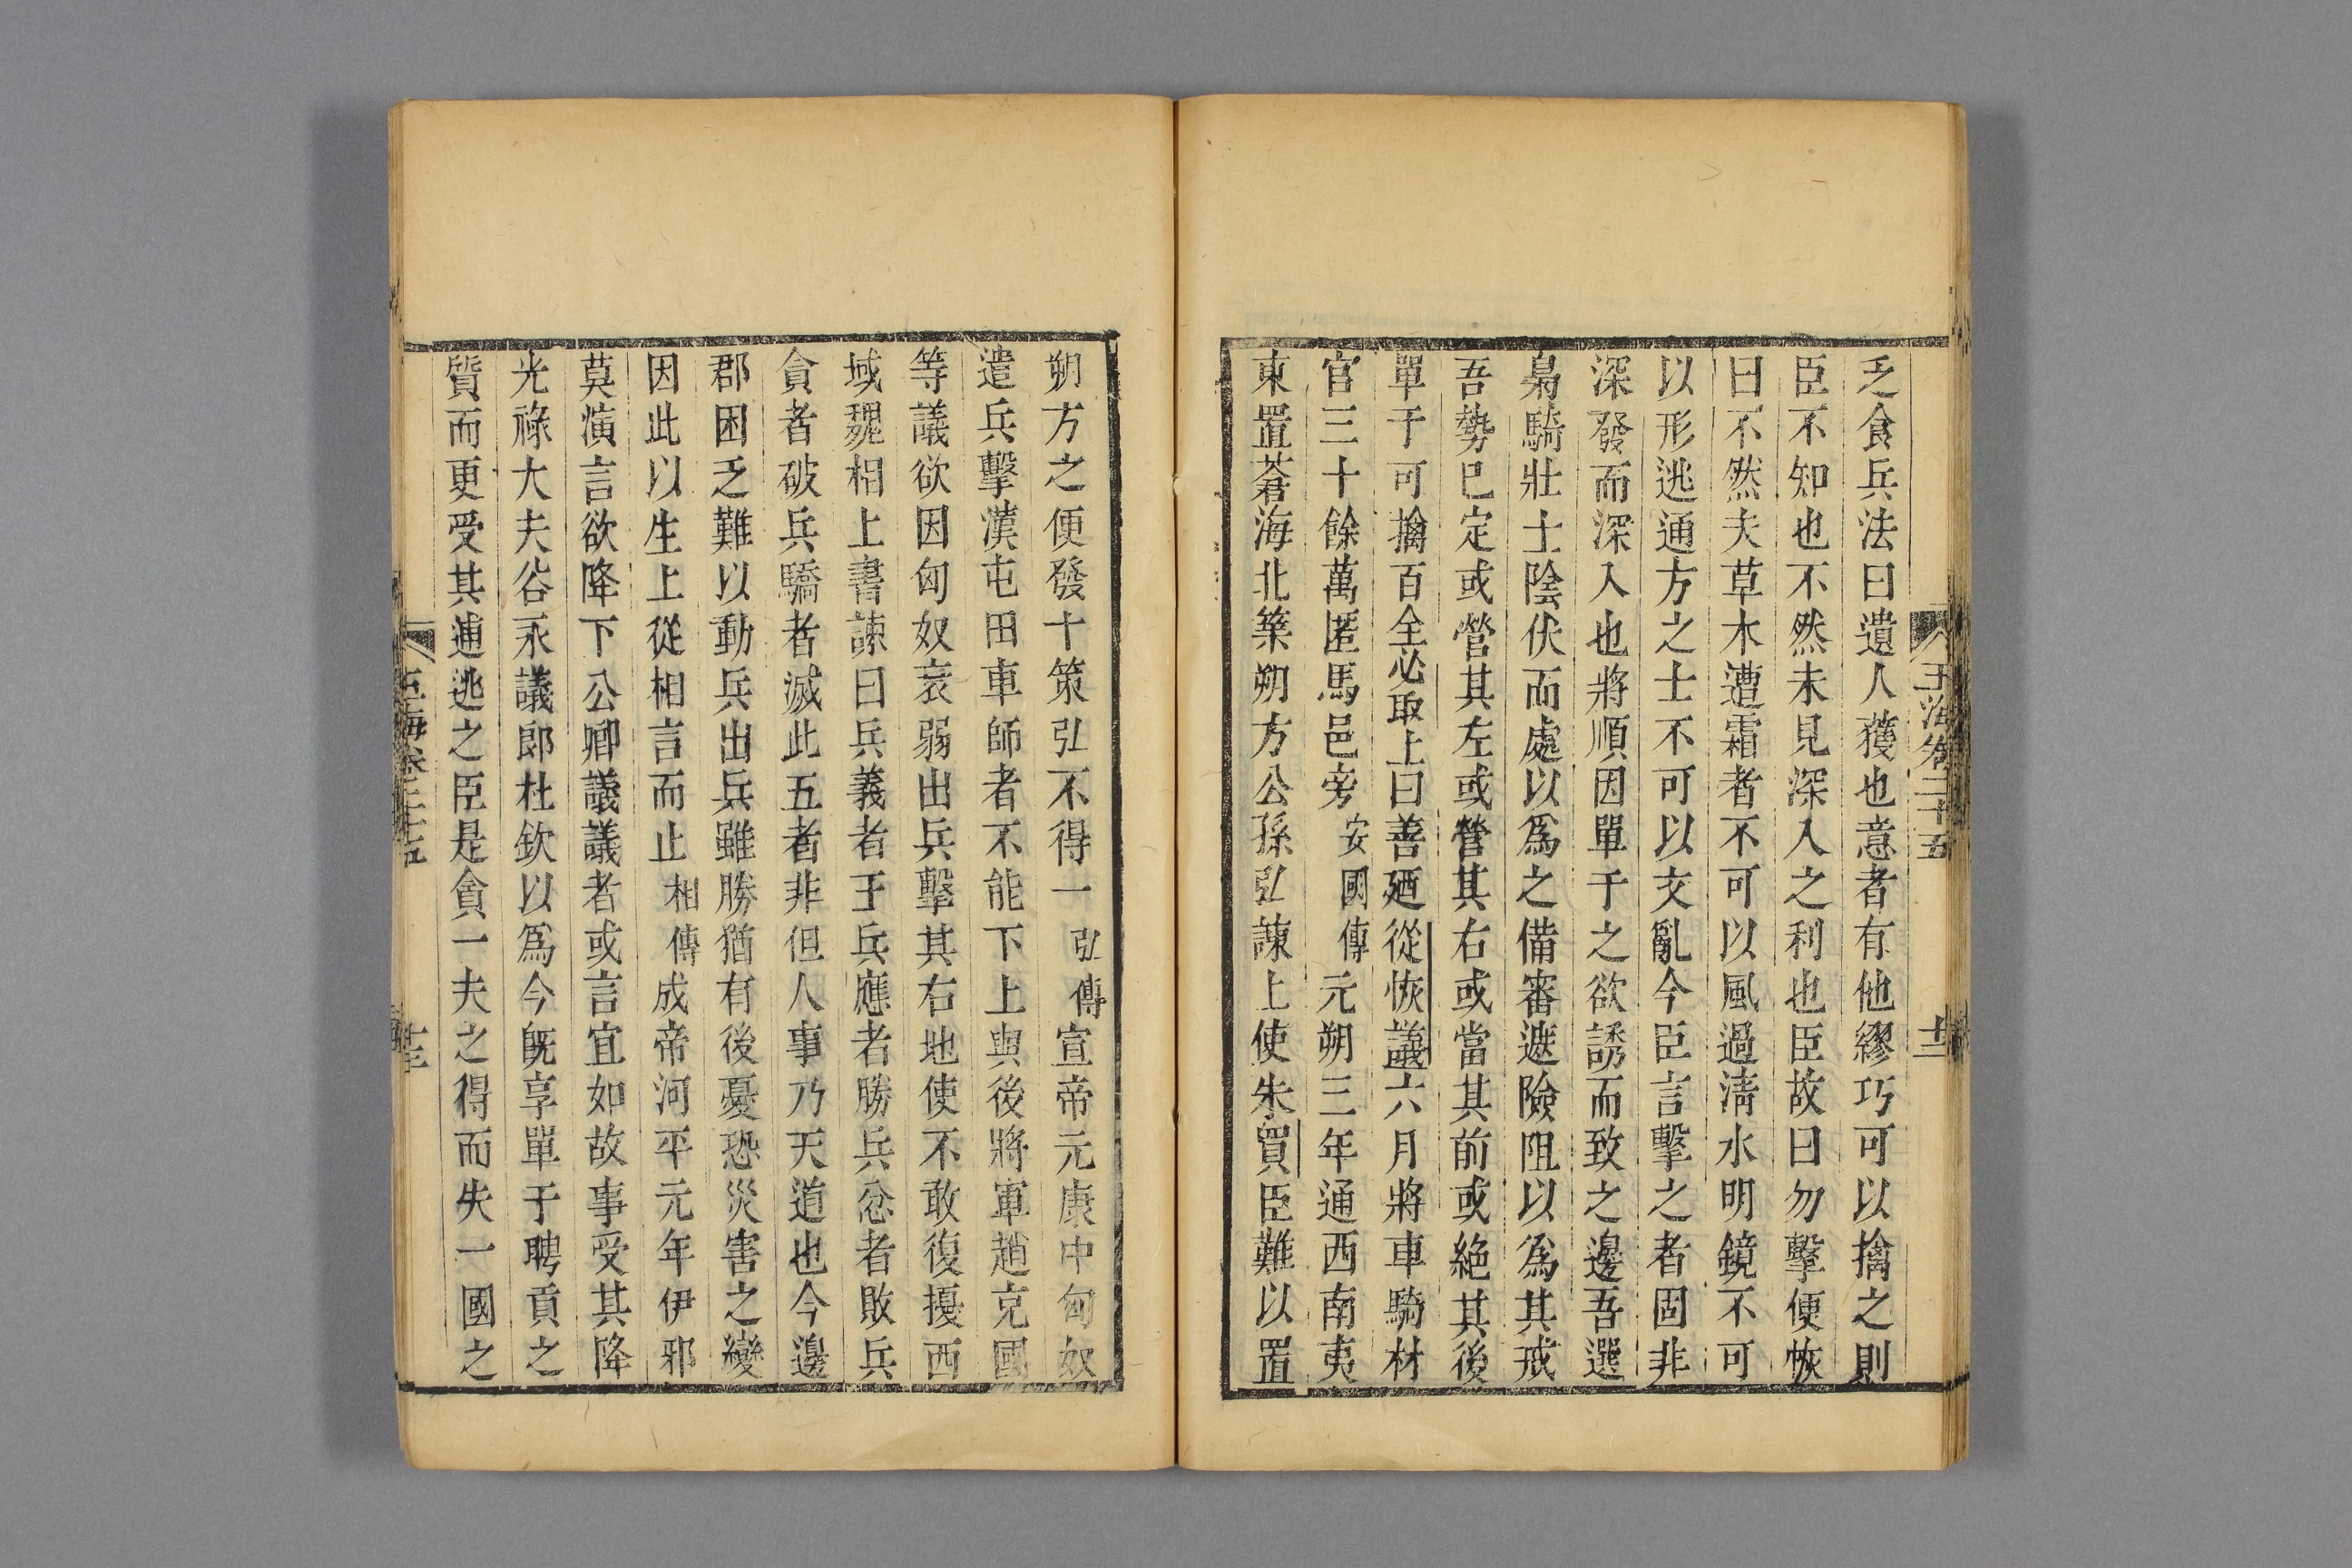 玉海卷二十五
十二
乏食兵法曰遺人獲也意者有他繆巧可以擒之則
臣不知也不然未見深入之利也臣故曰勿擊便恢
曰不然夫草木遭霜者不可以風過淸水明鏡不可
以形逃通方之士不可以文亂今臣言擊之者固非
深發而深入也將順因單于之欲誘而致之邊吾選
梟騎壯士陰伏而處以爲之備審遮險阻以爲其戒
吾勢已定或營其左或營其右或當其前或絶其後
單于可擒百全必取上曰善廼從恢議六月將車騎材
官三十餘萬匿馬邑旁安國傳元朔三年通西南夷
東置蒼海北築朔方公孫弘諫上使朱買臣難以置
朔方之便發十策弘不得一弘傳宣帝元康中匈奴
遣兵擊漢屯田車師者不能下上與後將軍趙充國
等議欲因匈奴衰弱出兵擊其右地使不敢復擾西
域魏相上書諫曰兵義者王兵應者勝兵忿者敗兵
貪者破兵驕者滅此五者非但人事乃天道也今邊
郡困乏難以動兵出兵雖勝猶有後憂恐災害之變
因此以生上從相言而止相傳成帝河平元年伊邪
莫演言欲降下公卿議議者或言宜如故事受其降
光祿大夫谷永議郎杜欽以爲今旣享單于聘貢之
質而更受其逋逃之臣是貪一夫之得而失一國之
玉海卷二十五